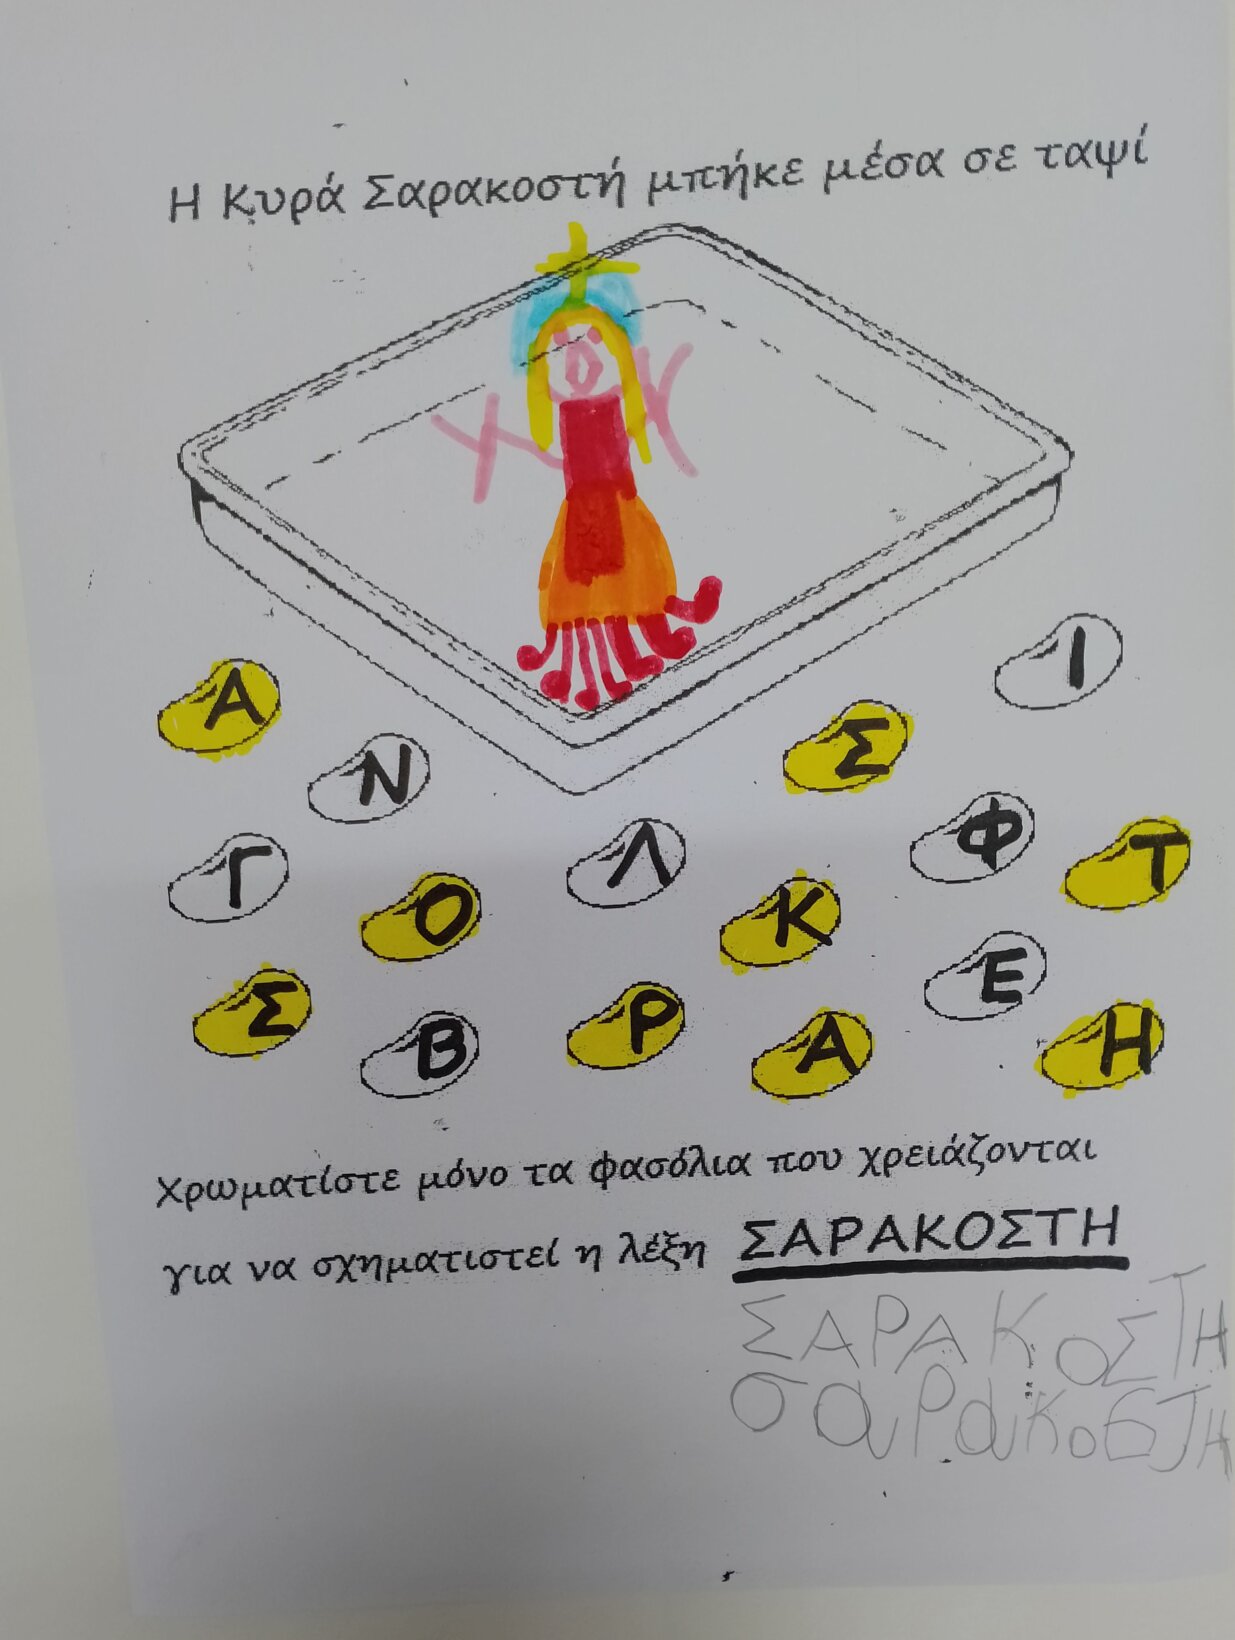 Η Κυρά Σαρακοστή μπήκε μέσα σε ταψί
Ι
Α
Σ
Ν
Φ
Τ
Λ
Γ
Κ
Ο
Ε
Σ
Ρ
Β
Α
Η
Χρωματίστε μόνο τα φασόλια που χρειάζονται
για να σχηματιστεί η λέξη ΣΑΡΑΚΟΣΤΗ
ΣΑΡΑΚΟΣΤΗ
σαρακοστη